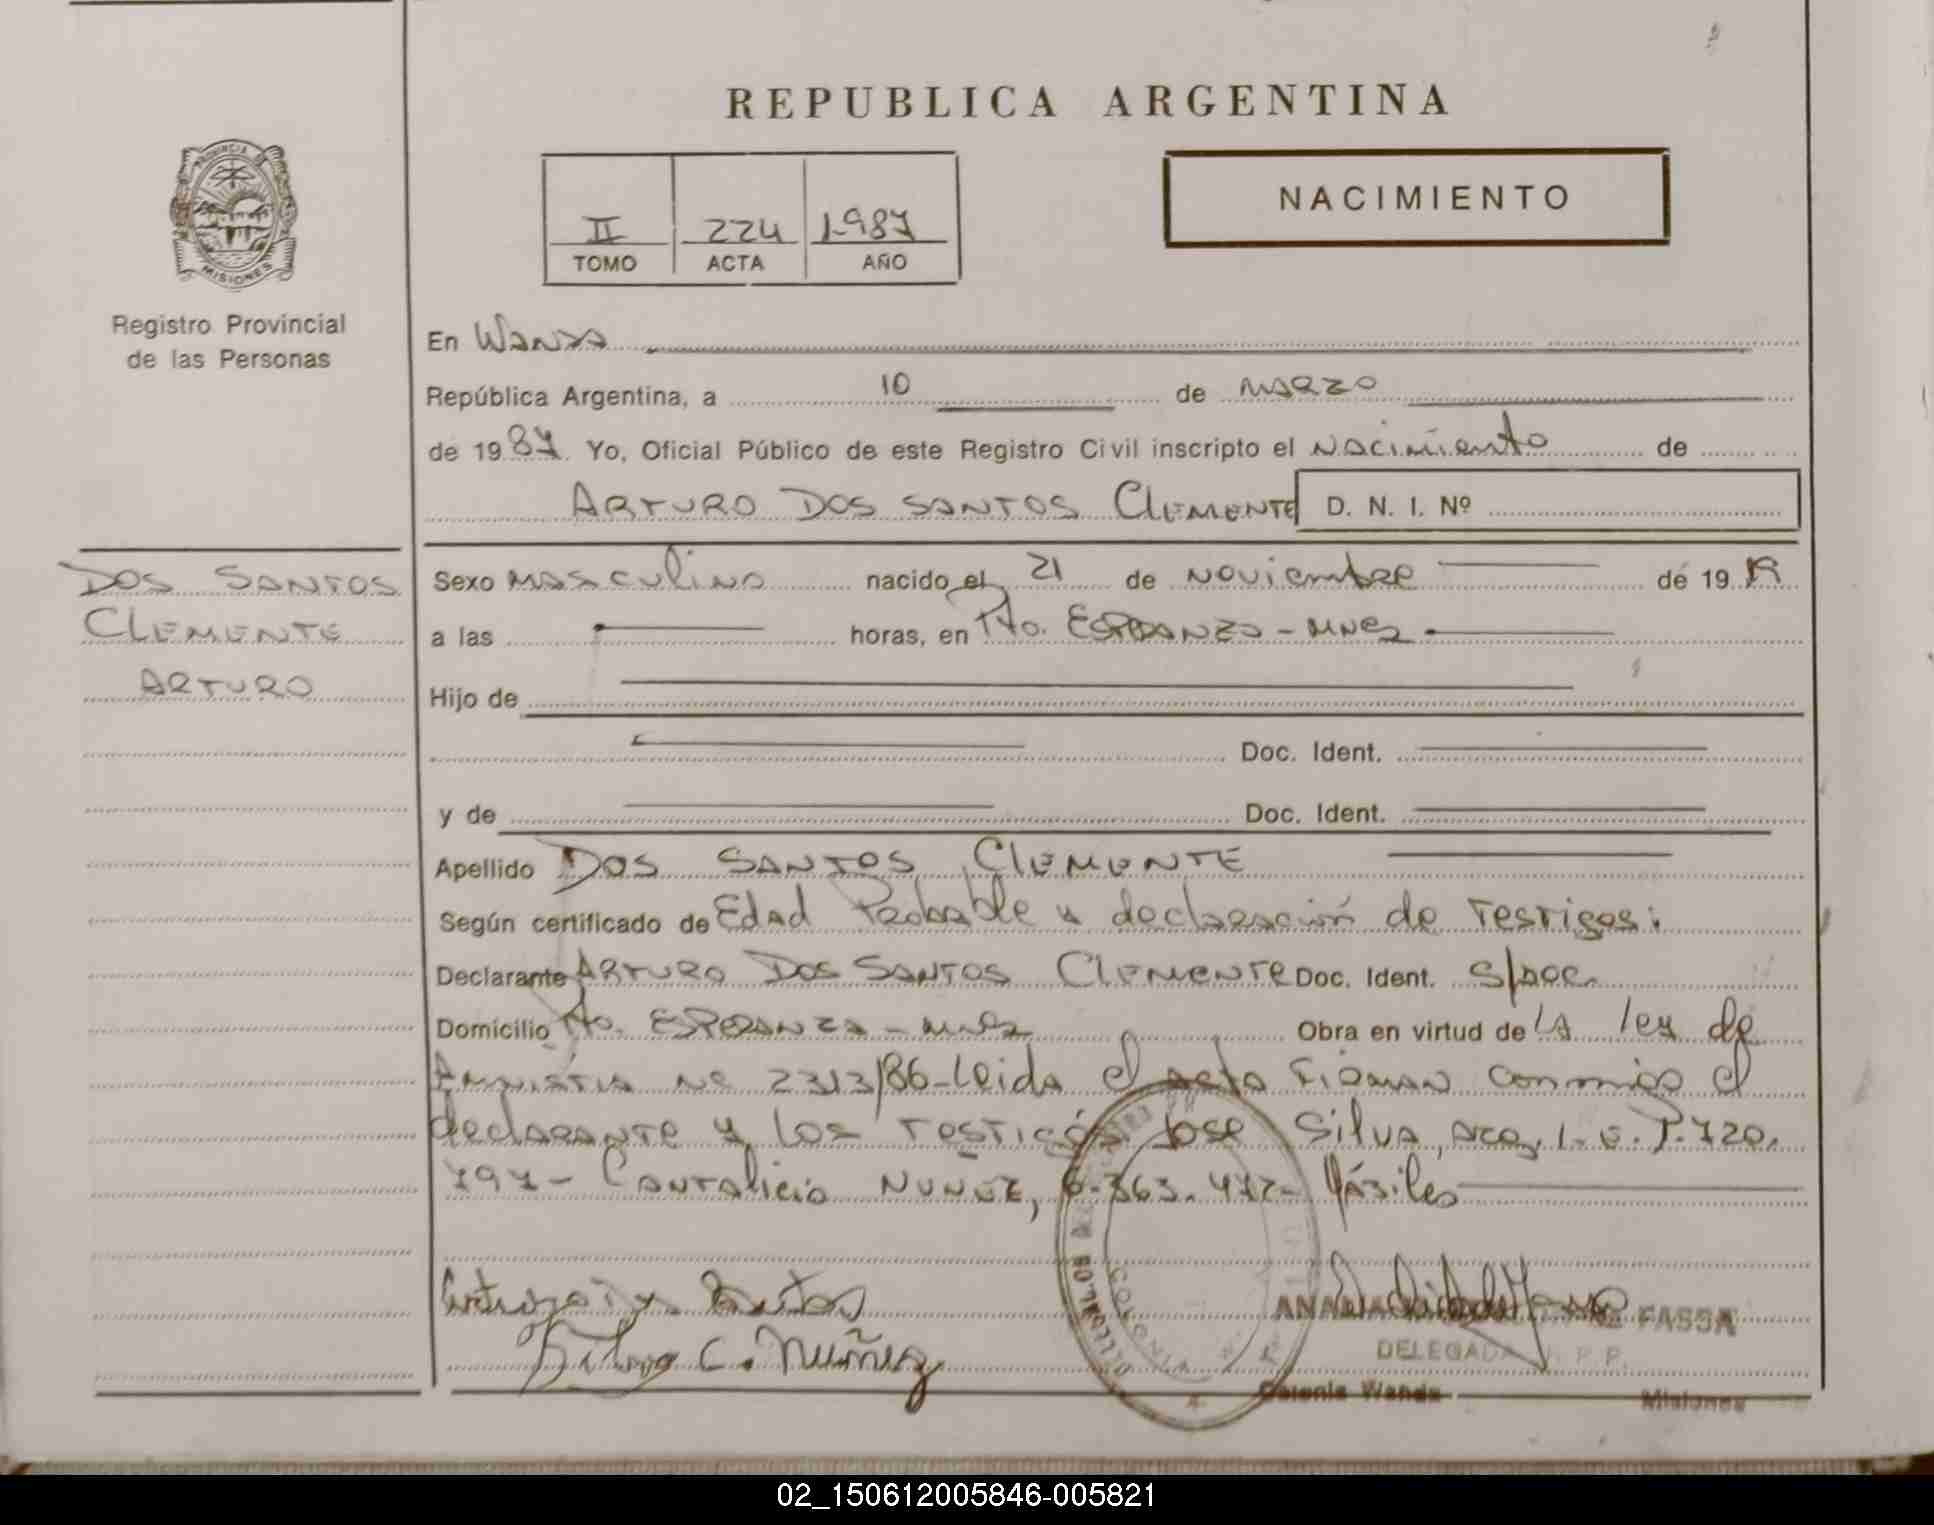 REPUBLICA ARGENTINA
PROVINCIA DE
MISIONES
Registro Provincial
de las Personas
II 224 1987
TOMO ACTA AÑO
NACIMIENTO
En Wanda
República Argentina, a 10 de marzo
de 1987 Yo, Oficial Público de este Registro Civil inscripto el Nacimiento de
ARTURO DOS SANTOS CLEMENTE D. N. I. Nº
DOS SANTOS
CLEMENTE
ARTURO
Sexo masculino nacido el 21 de noviembre de 19
a las horas, en Pto. Esperanza - Mnes
Hijo de
Doc. Ident.
y de Doc. Ident.
Apellido DOS SANTOS CLEMENTE
Según certificado de Edad Probable y declaración de testigos:
Declarante ARTURO DOS SANTOS CLEMENTE Doc. Ident. S/doc.
Domicilio Pto. ESPERANZA - Mnes Obra en virtud de la ley de
Amnistia Nº 2313/86 - Leida el acta firman conmigo el
declarante y los testigos Jose Silva, 720.
797 - Cantalicio NUNEZ, 6.363.472-
C. Nuñez
FASSA
DELEGADA R. P. P.
Colonia Wanda Misiones
02_150612005846-005821